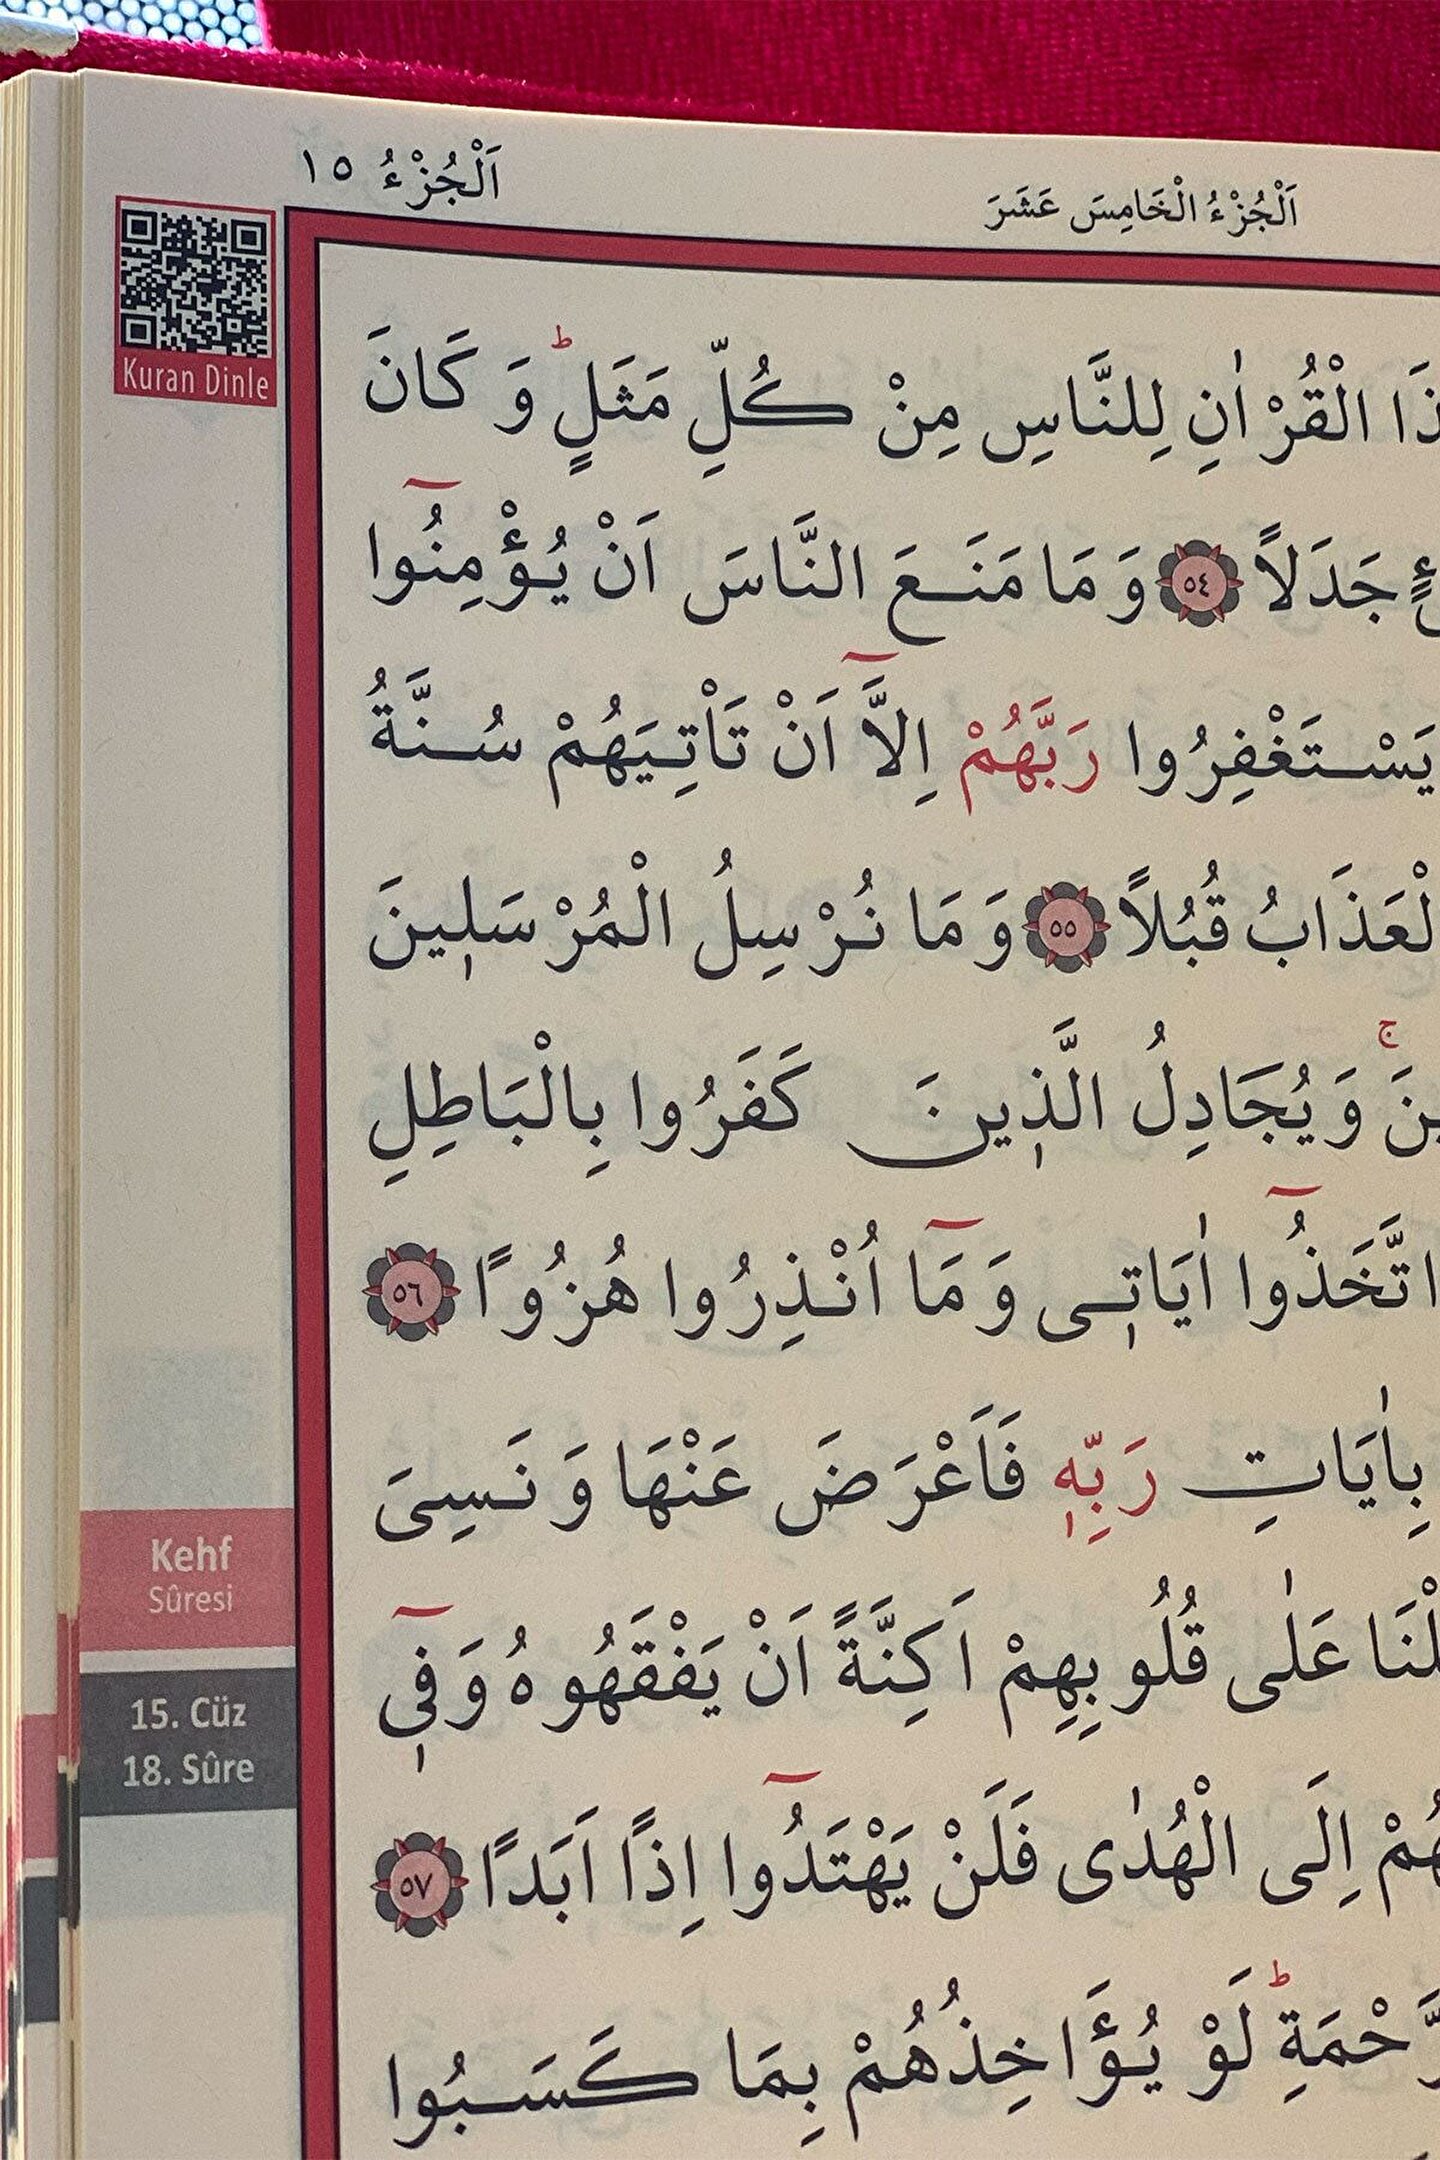 اَلْجُزْءُ الْخَامِسَ عَشَرَ
اَلْجُزْءُ ١٥
Kuran Dinle
ذَا الْقُرْاٰنِ لِلنَّاسِ مِنْ كُلِّ مَثَلٍۜ وَ كَانَ
جَدَلاً ٥٤ وَ مَا مَنَعَ النَّاسَ اَنْ يُؤْمِنُٓوا
يَسْتَغْفِرُوا رَبَّهُمْ اِلَّٓا اَنْ تَاْتِيَهُمْ سُنَّةُ
لْعَذَابُ قُبُلاً ٥٥ وَ مَا نُرْسِلُ الْمُرْسَلٖينَ
ينَۚ وَ يُجَادِلُ الَّذٖينَ كَفَرُوا بِالْبَاطِلِ
اتَّخَذُٓوا اٰيَاتٖى وَ مَٓا اُنْذِرُوا هُزُوًا ٥٦
بِاٰيَاتِ رَبِّهٖ فَاَعْرَضَ عَنْهَا وَ نَسِىَ
لْنَا عَلٰى قُلُوبِهِمْ اَكِنَّةً اَنْ يَفْقَهُوهُ وَ فٖٓى
هُمْ اِلَى الْهُدٰى فَلَنْ يَهْتَدُٓوا اِذًا اَبَدًا ٥٧
رَّحْمَةِۜ لَوْ يُؤَاخِذُهُمْ بِمَا كَسَبُوا
Kehf
Sûresi
15. Cüz
18. Sûre